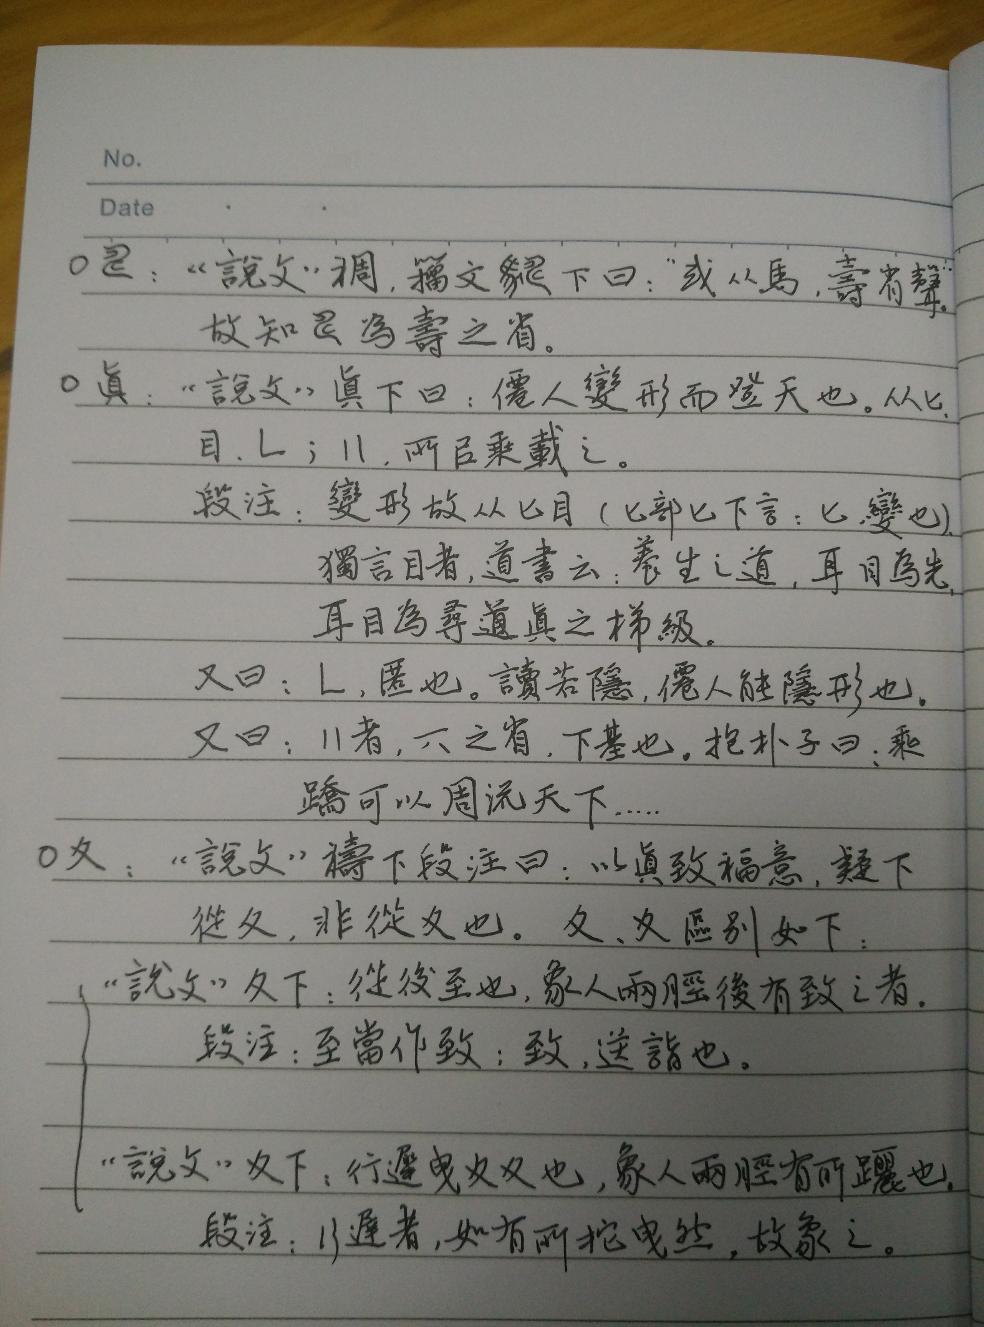 No.
Date
："說文"禂，籀文下曰："或从馬，壽省聲。"
故知為壽之省。
○眞："說文"眞下曰：僊人變形而登天也。从匕、
目、乚；八，所㠯乘載之。
段注：變形故从匕目（匕部匕下言：匕，變也）。
獨言目者，道書云：養生之道，耳目為先，
耳目為尋道眞之梯級。
又曰：乚，匿也。讀若隱，僊人能隱形也。
又曰：八者，六之省，下基也。抱朴子曰：乘
蹻可以周流天下……
○夂："說文"禱下段注曰：以眞致福意，疑下
從夂，非從夊也。夂、夊區別如下：
"說文"夂下：從後至也，象人兩脛後有致之者。
段注：至當作致；致，送詣也。
"說文"夊下：行遲曳夊夊也，象人兩脛有所躧也。
段注：行遲者，如有所拕曳然，故象之。